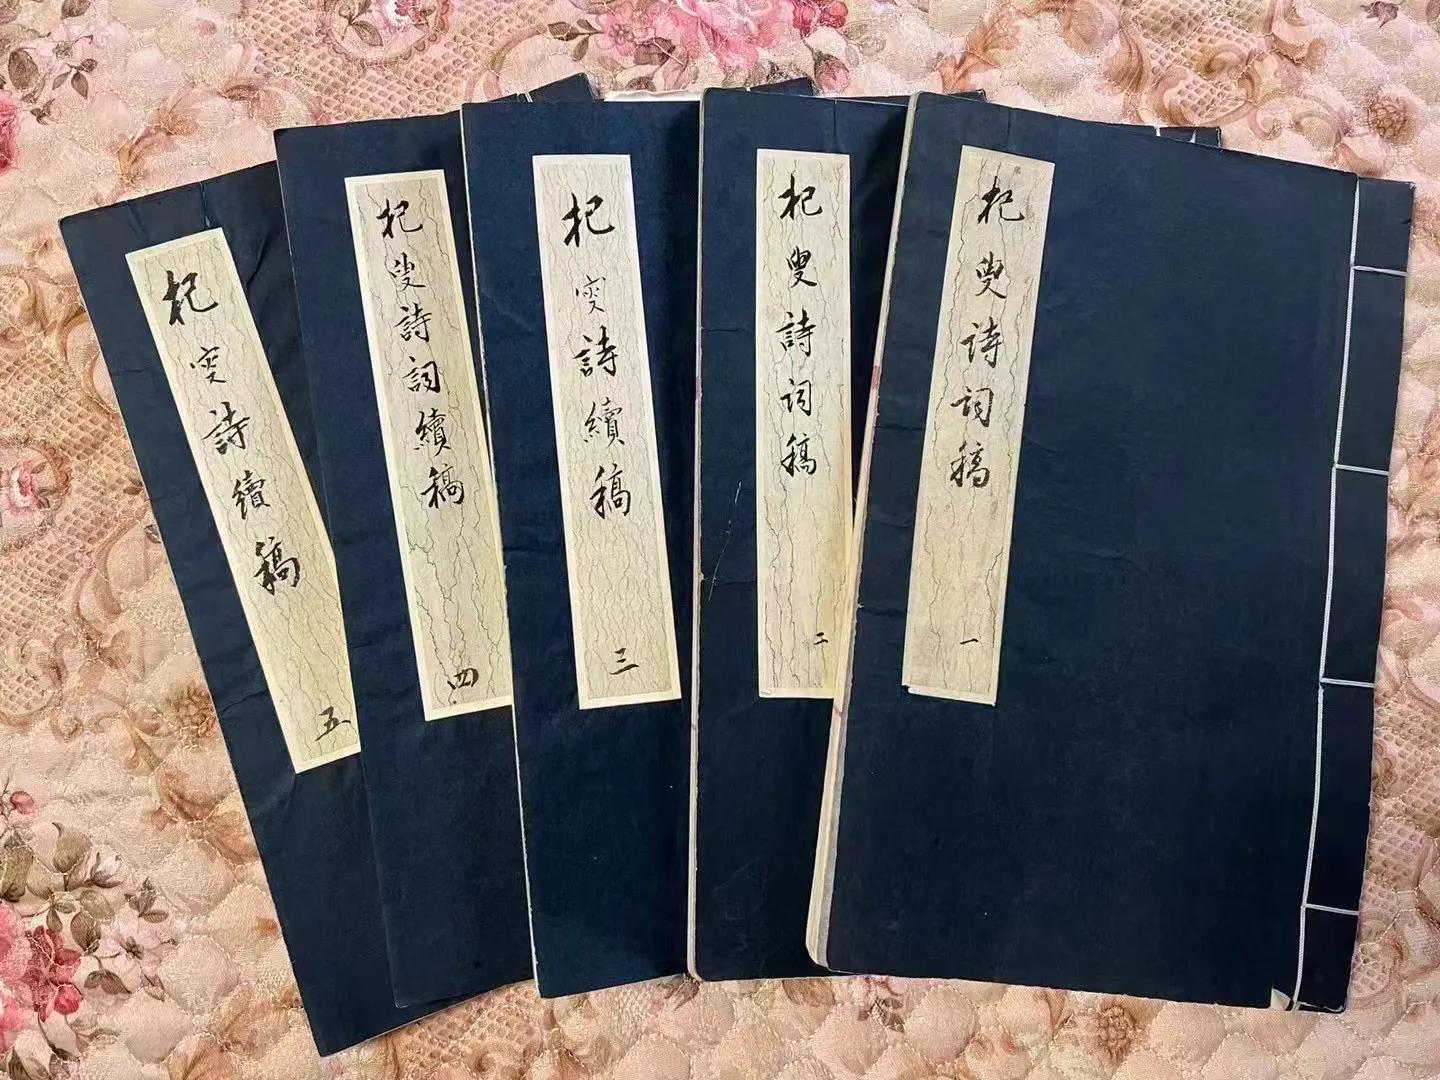 杞叟诗词稿
一
杞叟詩词稿
二
杞叟詩續稿
三
杞叟詩詞續稿
四
杞叟詩續稿
五